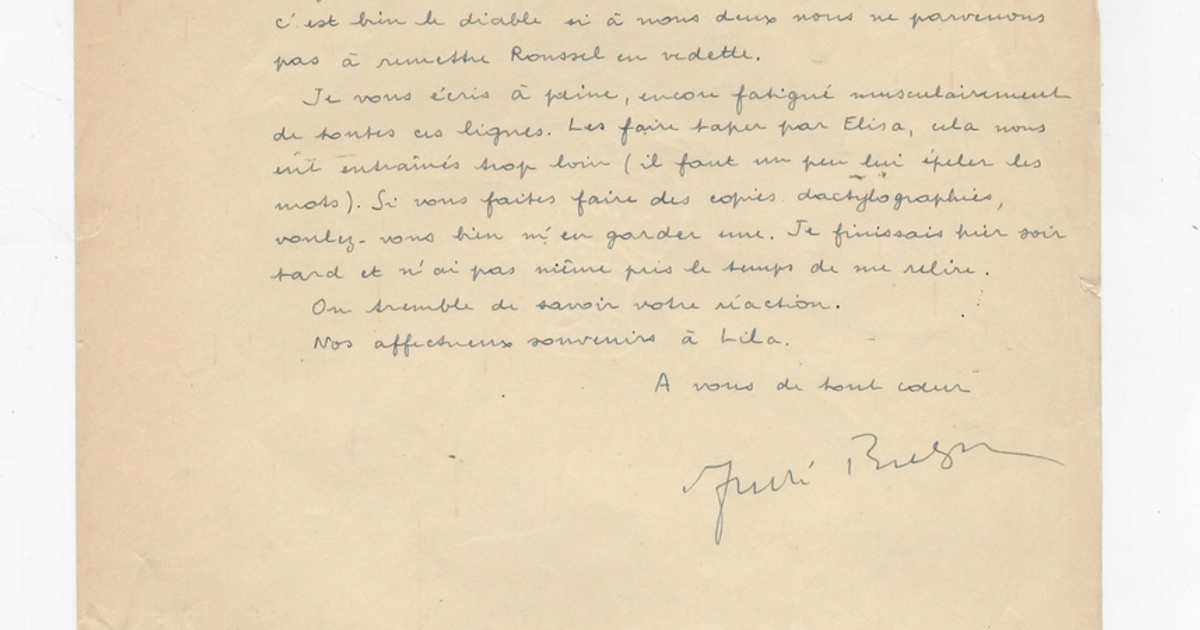 c'est bien le diable si à nous deux nous ne parvenons
pas à remettre Roussel en vedette.
Je vous écris à peine, encore fatigué musculairement
de toutes ces lignes. Les faire taper par Elisa, cela nous
eût entraînés trop loin (il faut un peu lui épeler les
mots). Si vous faites faire des copies dactylographiées,
voulez-vous bien m'en garder une. Je finissais hier soir
tard et n'ai pas même pris le temps de me relire.
On tremble de savoir votre réaction.
Nos affectueux souvenirs à Lila.
A vous de tout cœur
André Breton